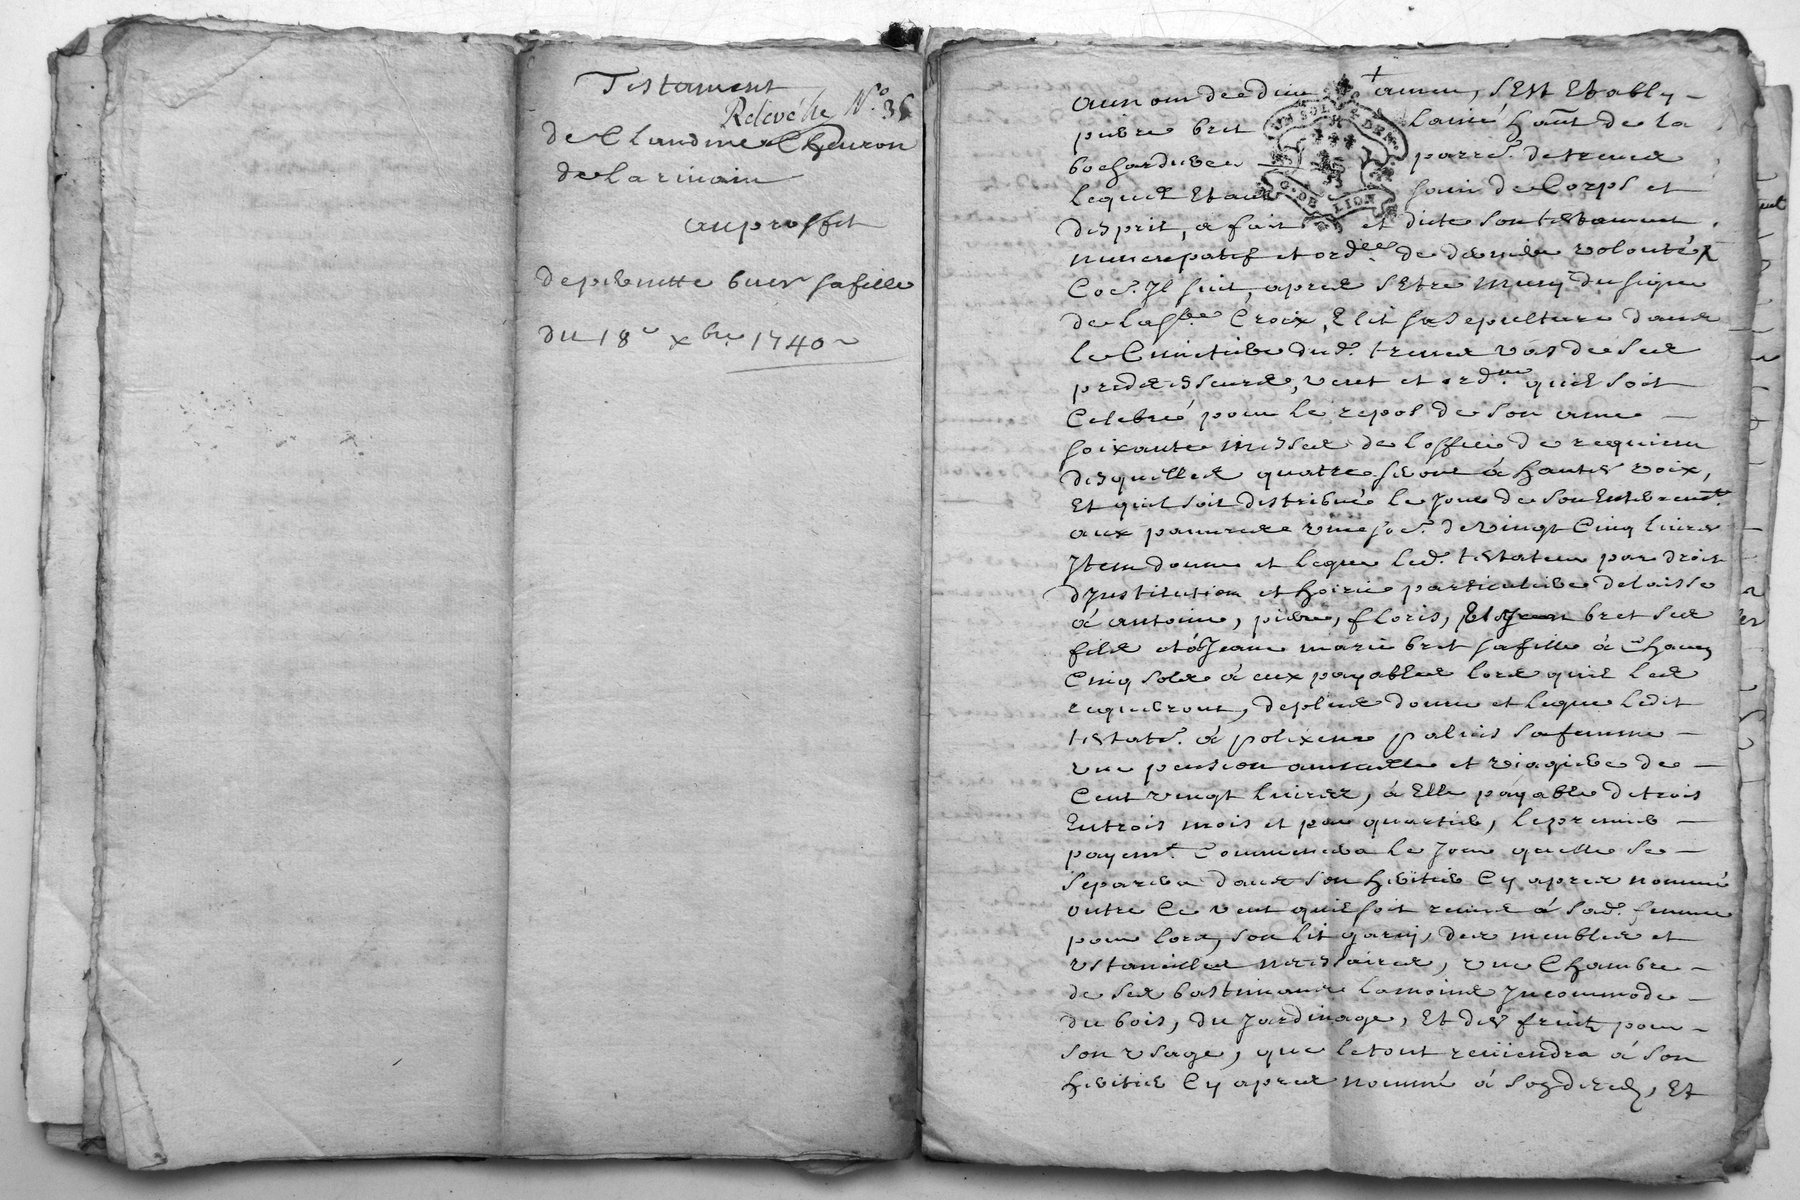 Testament
Relevée N.º 36
de Claudine Cheuron
de la rinain
au proffit
de pierrette buer sa fille
du 18e xbre 1740
+
au nom de dieu amen, sEst Etably
pierre bret laîné hant de la
bochardiere parre. de treues
lequel Etant sain de Corps et
desprit, a fait et dicté son testament
nuncupatif et ord.ée de derniere volonté
Coe. Il suit, apres sEtre muny du signe
de la Ste Croix, Elit sa sepulture dans
le Cimetiere dud. treues vas de ses
predecesseurs, veut et ord.ne quil soit
Celebré pour le repos de son ame
soixante messes de loffice de requiem
desquelles quatre seront à hautes voix,
Et quil soit distribué le Jour de son Enterremt.
aux pauures une soe. de vingt Cinq liures
Item donne et legue led. testateur par droit
dInstitution et hoirie particuliere delaisse
à antoine, pierre, floris, Et Jean bret ses
fils et à Jeanne marie bret sa fille à Chacun
Cinq sols à eux payables lors quil les
requerront, de plus donne et legue ledit
testatr. à polixene palais sa femme
une pension annuelle et viagere de
Cent vingt liures, à Elle payable de trois
En trois mois et par quartier, le premier
payemt. Commencera le Jour quelle se
separera dans son heritier Cy apres nommé
outre Ce veut quil soit remis à sad. femme
pour lors, son lit garni, des meubles et
ustancilles necessaires, une Chambre
de ses bastimants la moins Incommode
du bois, du Jardinage, Et des fruits pour
son usage, que le tout reuiendra à son
heritier Cy apres nommé à son deces, Et
UN SOL 4 DEN.
G. DE LION